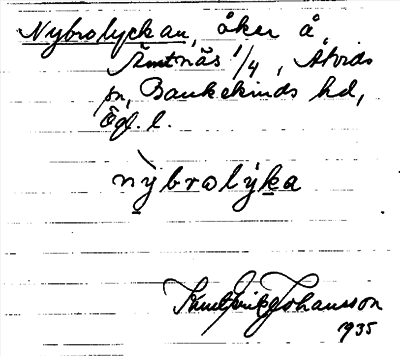 Nybrolyckan, åker å
Ämtnäs 1/4, Åtvids
sn, Bankekinds hd,
Ögl. l.
nỳbrolýka
Knut Erik Johansson
1935